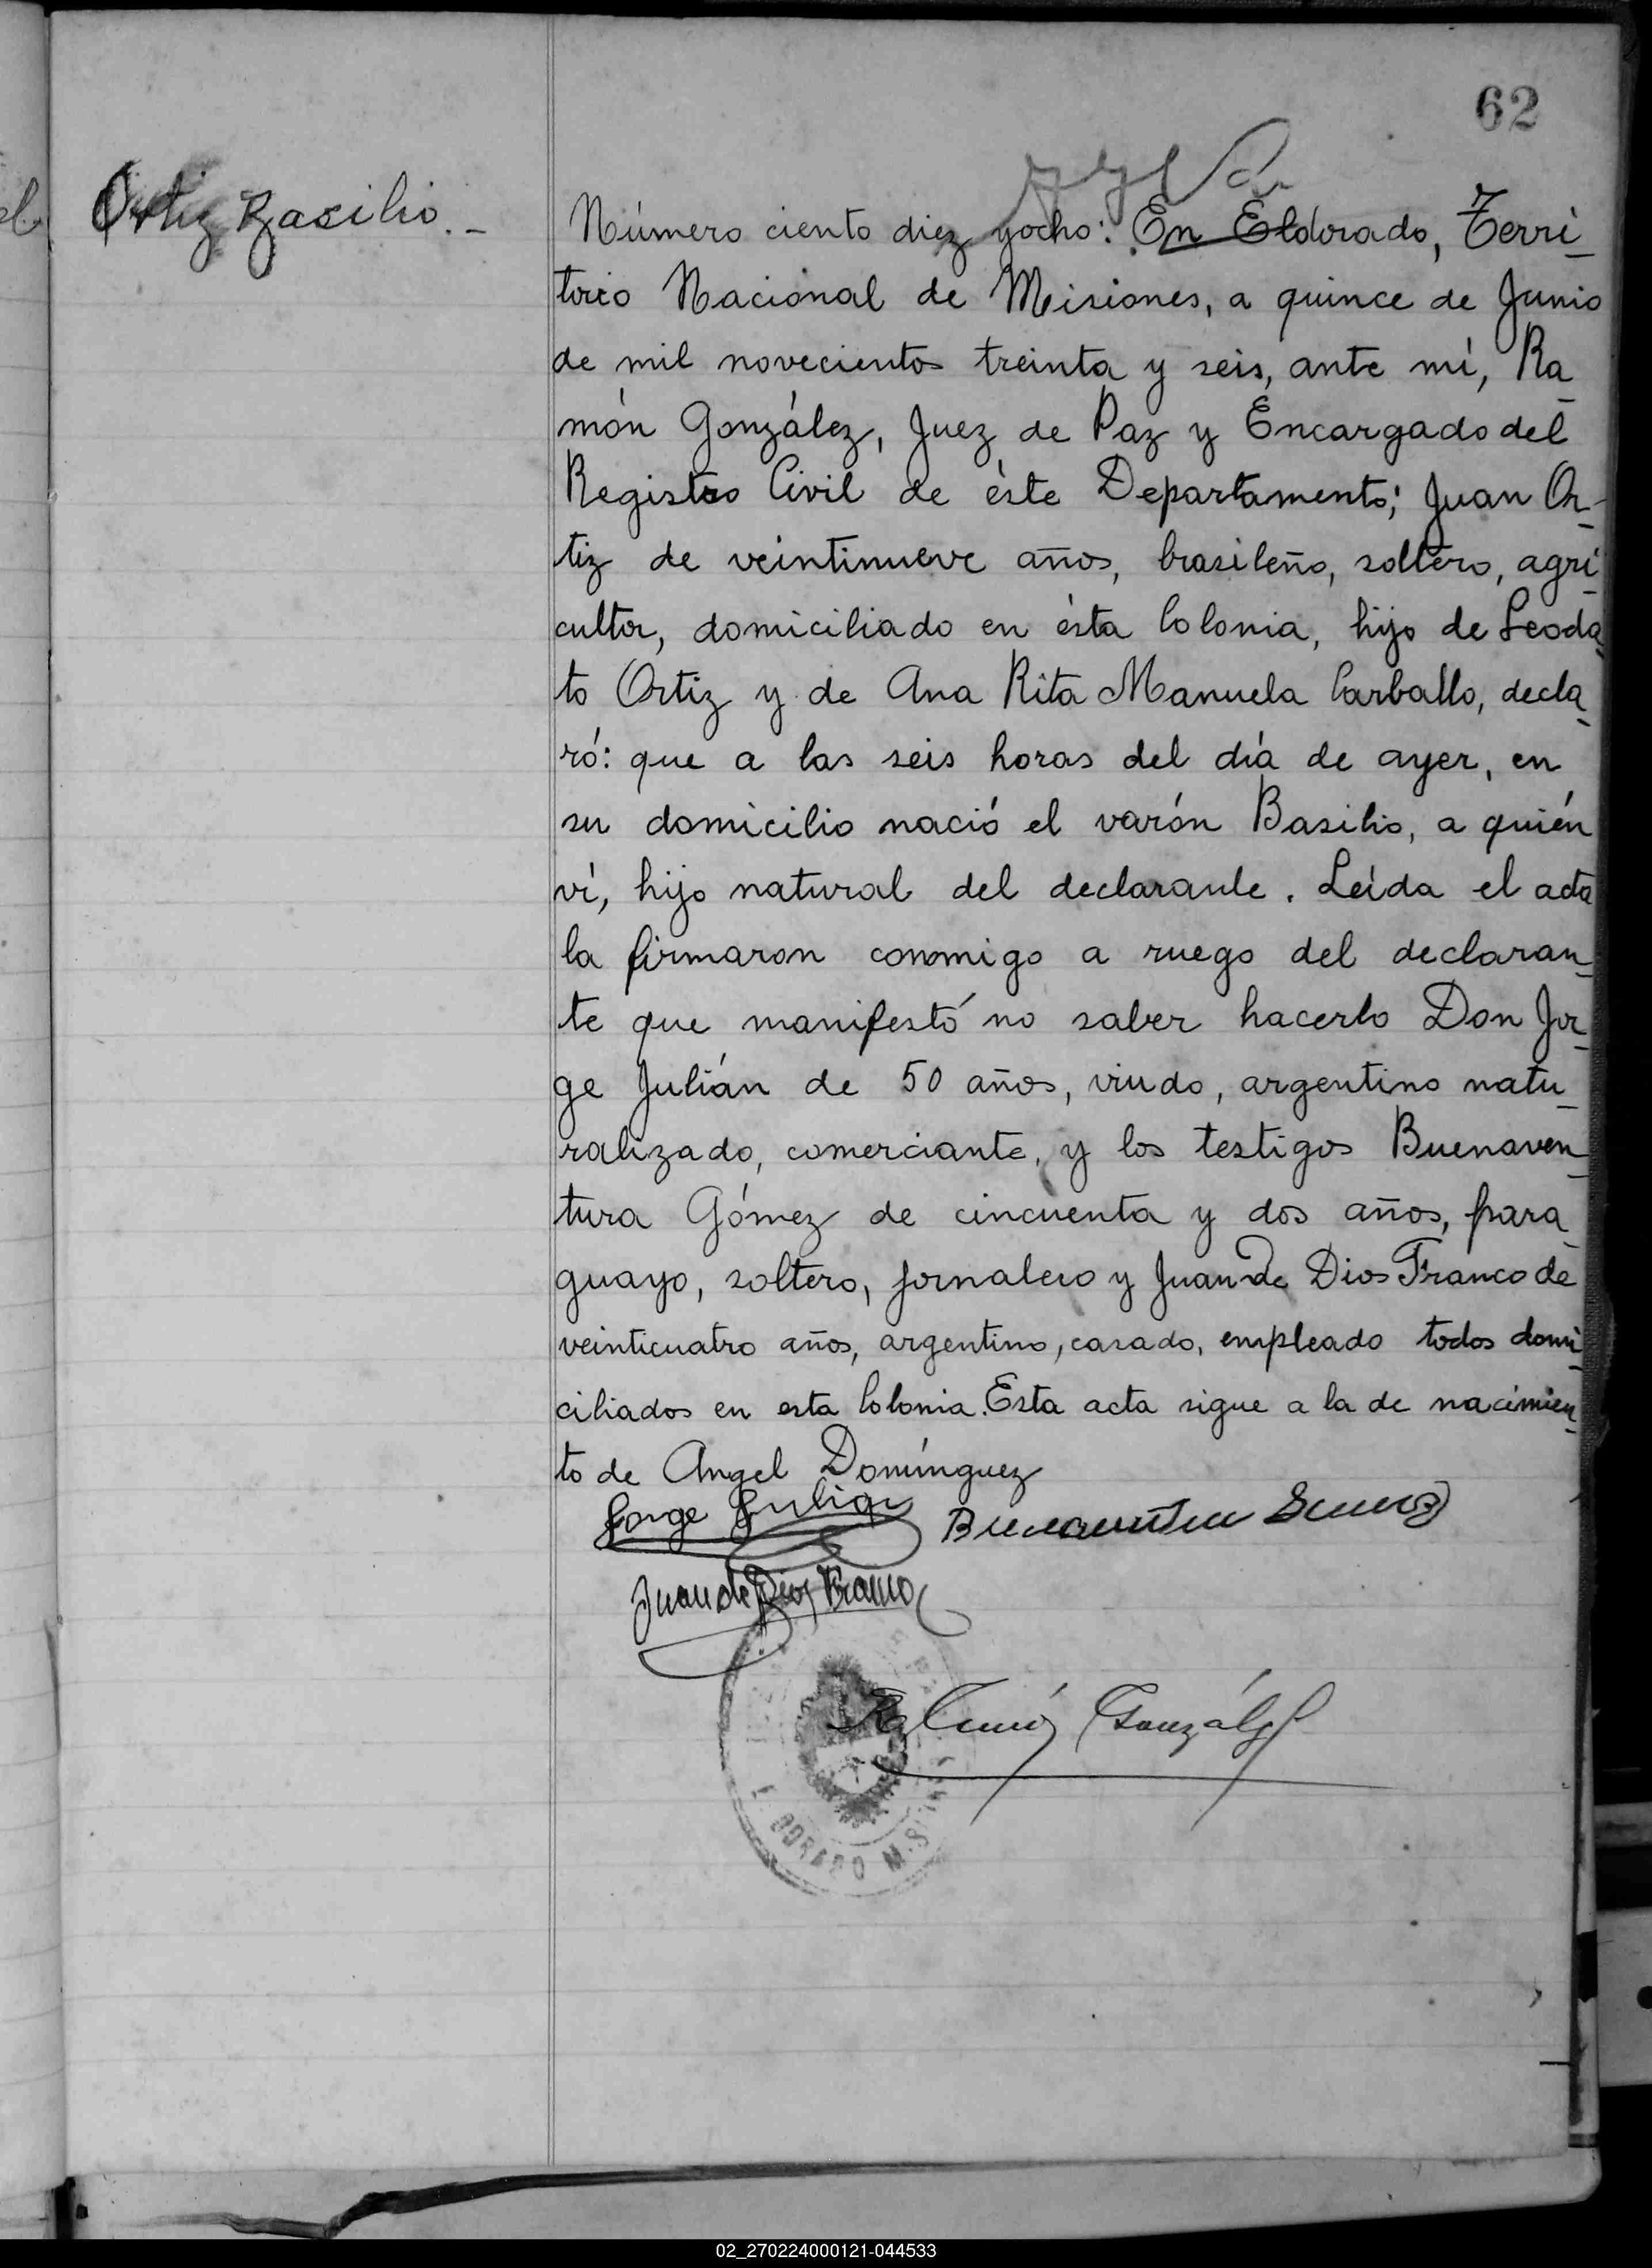 62
Ortiz Basilio.-
Número ciento diez yocho: En Eldorado, Terri
torio Nacional de Misiones, a quince de Junio
de mil novecientos treinta y seis, ante mí, Ra
món González, Juez de Paz y Encargado del
Registro Civil de éste Departamento; Juan Or-
tiz de veintinueve años, brasileño, soltero, agri
cultor, domiciliado en ésta Colonia, hijo de Leoda
to Ortiz y de Ana Rita Manuela Carballo, decla
ró: que a las seis horas del día de ayer, en
su domicilio nació el varón Basilio, a quién
ví, hijo natural del declarante. Leída el acta
la firmaron conmigo a ruego del declaran
te que manifestó no saber hacerlo Don Jor
ge Julián de 50 años, viudo, argentino natu
ralizado, comerciante, y los testigos Buenaven
tura Gómez de cincuenta y dos años, para
guayo, soltero, jornalero y Juan de Dios Franco de
veinticuatro años, argentino, casado, empleado todos domi
ciliados en esta Colonia. Esta acta sigue a la de nacimien
to de Angel Domínguez
Jorge Julian
Juan de Dios Franco
Ramón González
DORADO
02_270224000121-044533